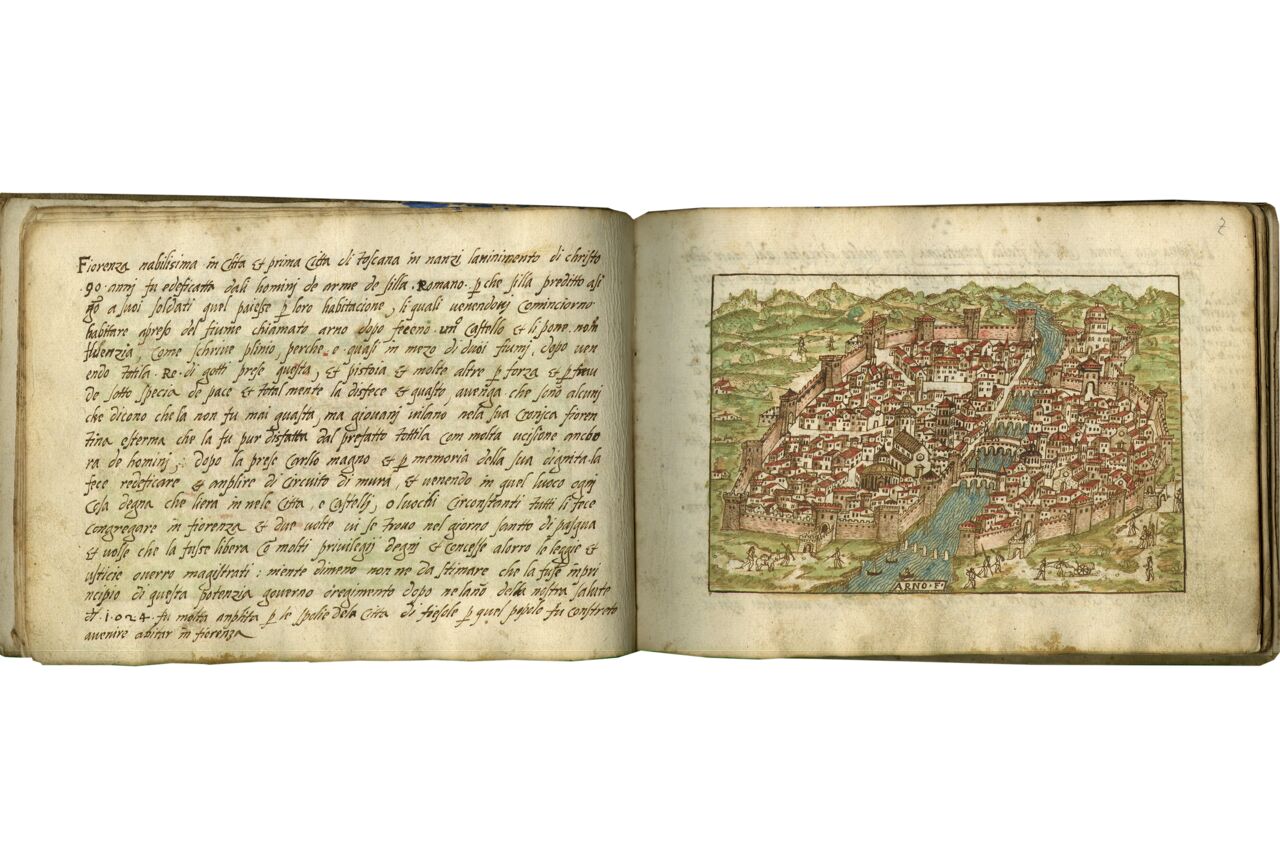 Fiorenza nabilisima in Citta & prima Citta di toscana in nanzi lavinimento di christo
.90. anni fu edeficata dali homini de arme de silla. Romano. p che silla preditto asi
gno a suoi soldati quel paiesse p loro habitacione, li quali venendovi Cominciorno
habitare apresso del fiume chiamato arno dopo feceno un Castello & li pone nome
fluenzia, Come schrive plinio, perche e quali in mezo di duoi fiumi, dopo ven
endo totila. Re. di gotti prese questa, & pistoia et molte altre p forza & p
de sotto specia de pace & total mente la disfece & guasto avenga che sono alcuni
che dicono che la non fu mai guasta, ma giovani vilano nela sua Cronica fioren
tina esferma che la fu pur disfatta dal prefatto tottila com molta ucisione anche
ra de homini,: dopo la prese Carllo magno & p memoria della sua dignita la
fece redeficare & anplire di Circuito di mura, & venendo in quel luoco ogni
Cosa degna che liera in nele Citta, e Castelli, o luochi Circonstanti tutti li fece
Congregare in fiorenza & due volte vi se trovo nel giorno santto di pasqua
& volse che la fusse libera Co molti privilegij degni & Concesse alorro le legge &
usticie overro magistrati: mente dimeno non ne da stimare che la fuse inpri
ncipio di questa potenzia governo oregimento dopo nelano della nostra salute
.1.024. fu molta anplita p le spolie dela Citta di fiesole p quel popolo fu Constreto
avenire abitar in fiorenza
2
ARNO·F·